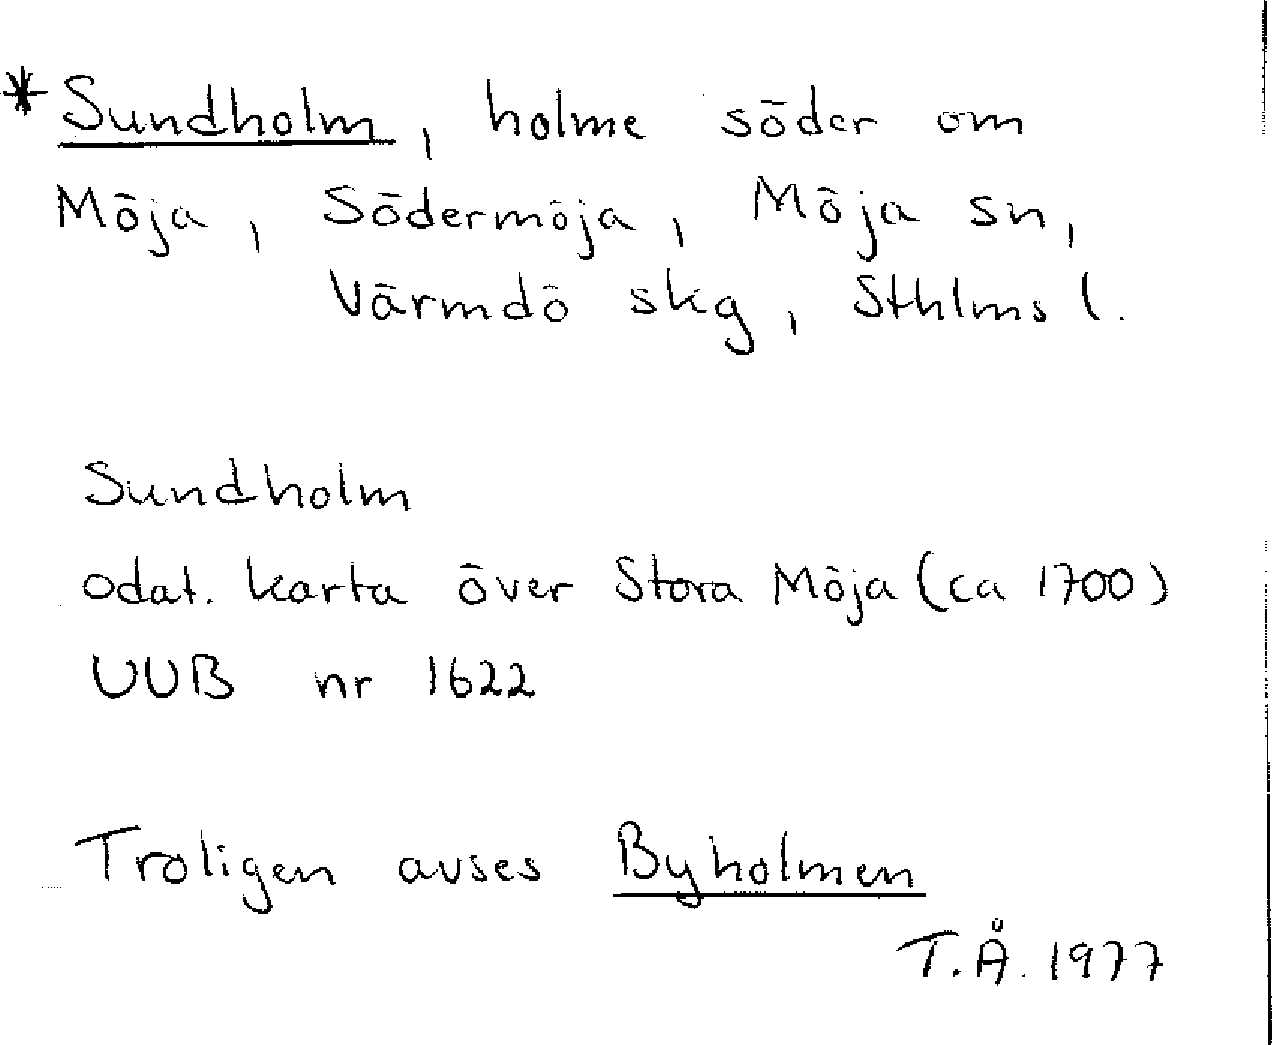 *Sundholm, holme söder om
Möja, Södermöja, Möja sn,
Värmdö skg, Sthlms l.
Sundholm
odat. karta över Stora Möja (ca 1700)
UUB nr 1622
Troligen avses Byholmen
T.Å. 1977